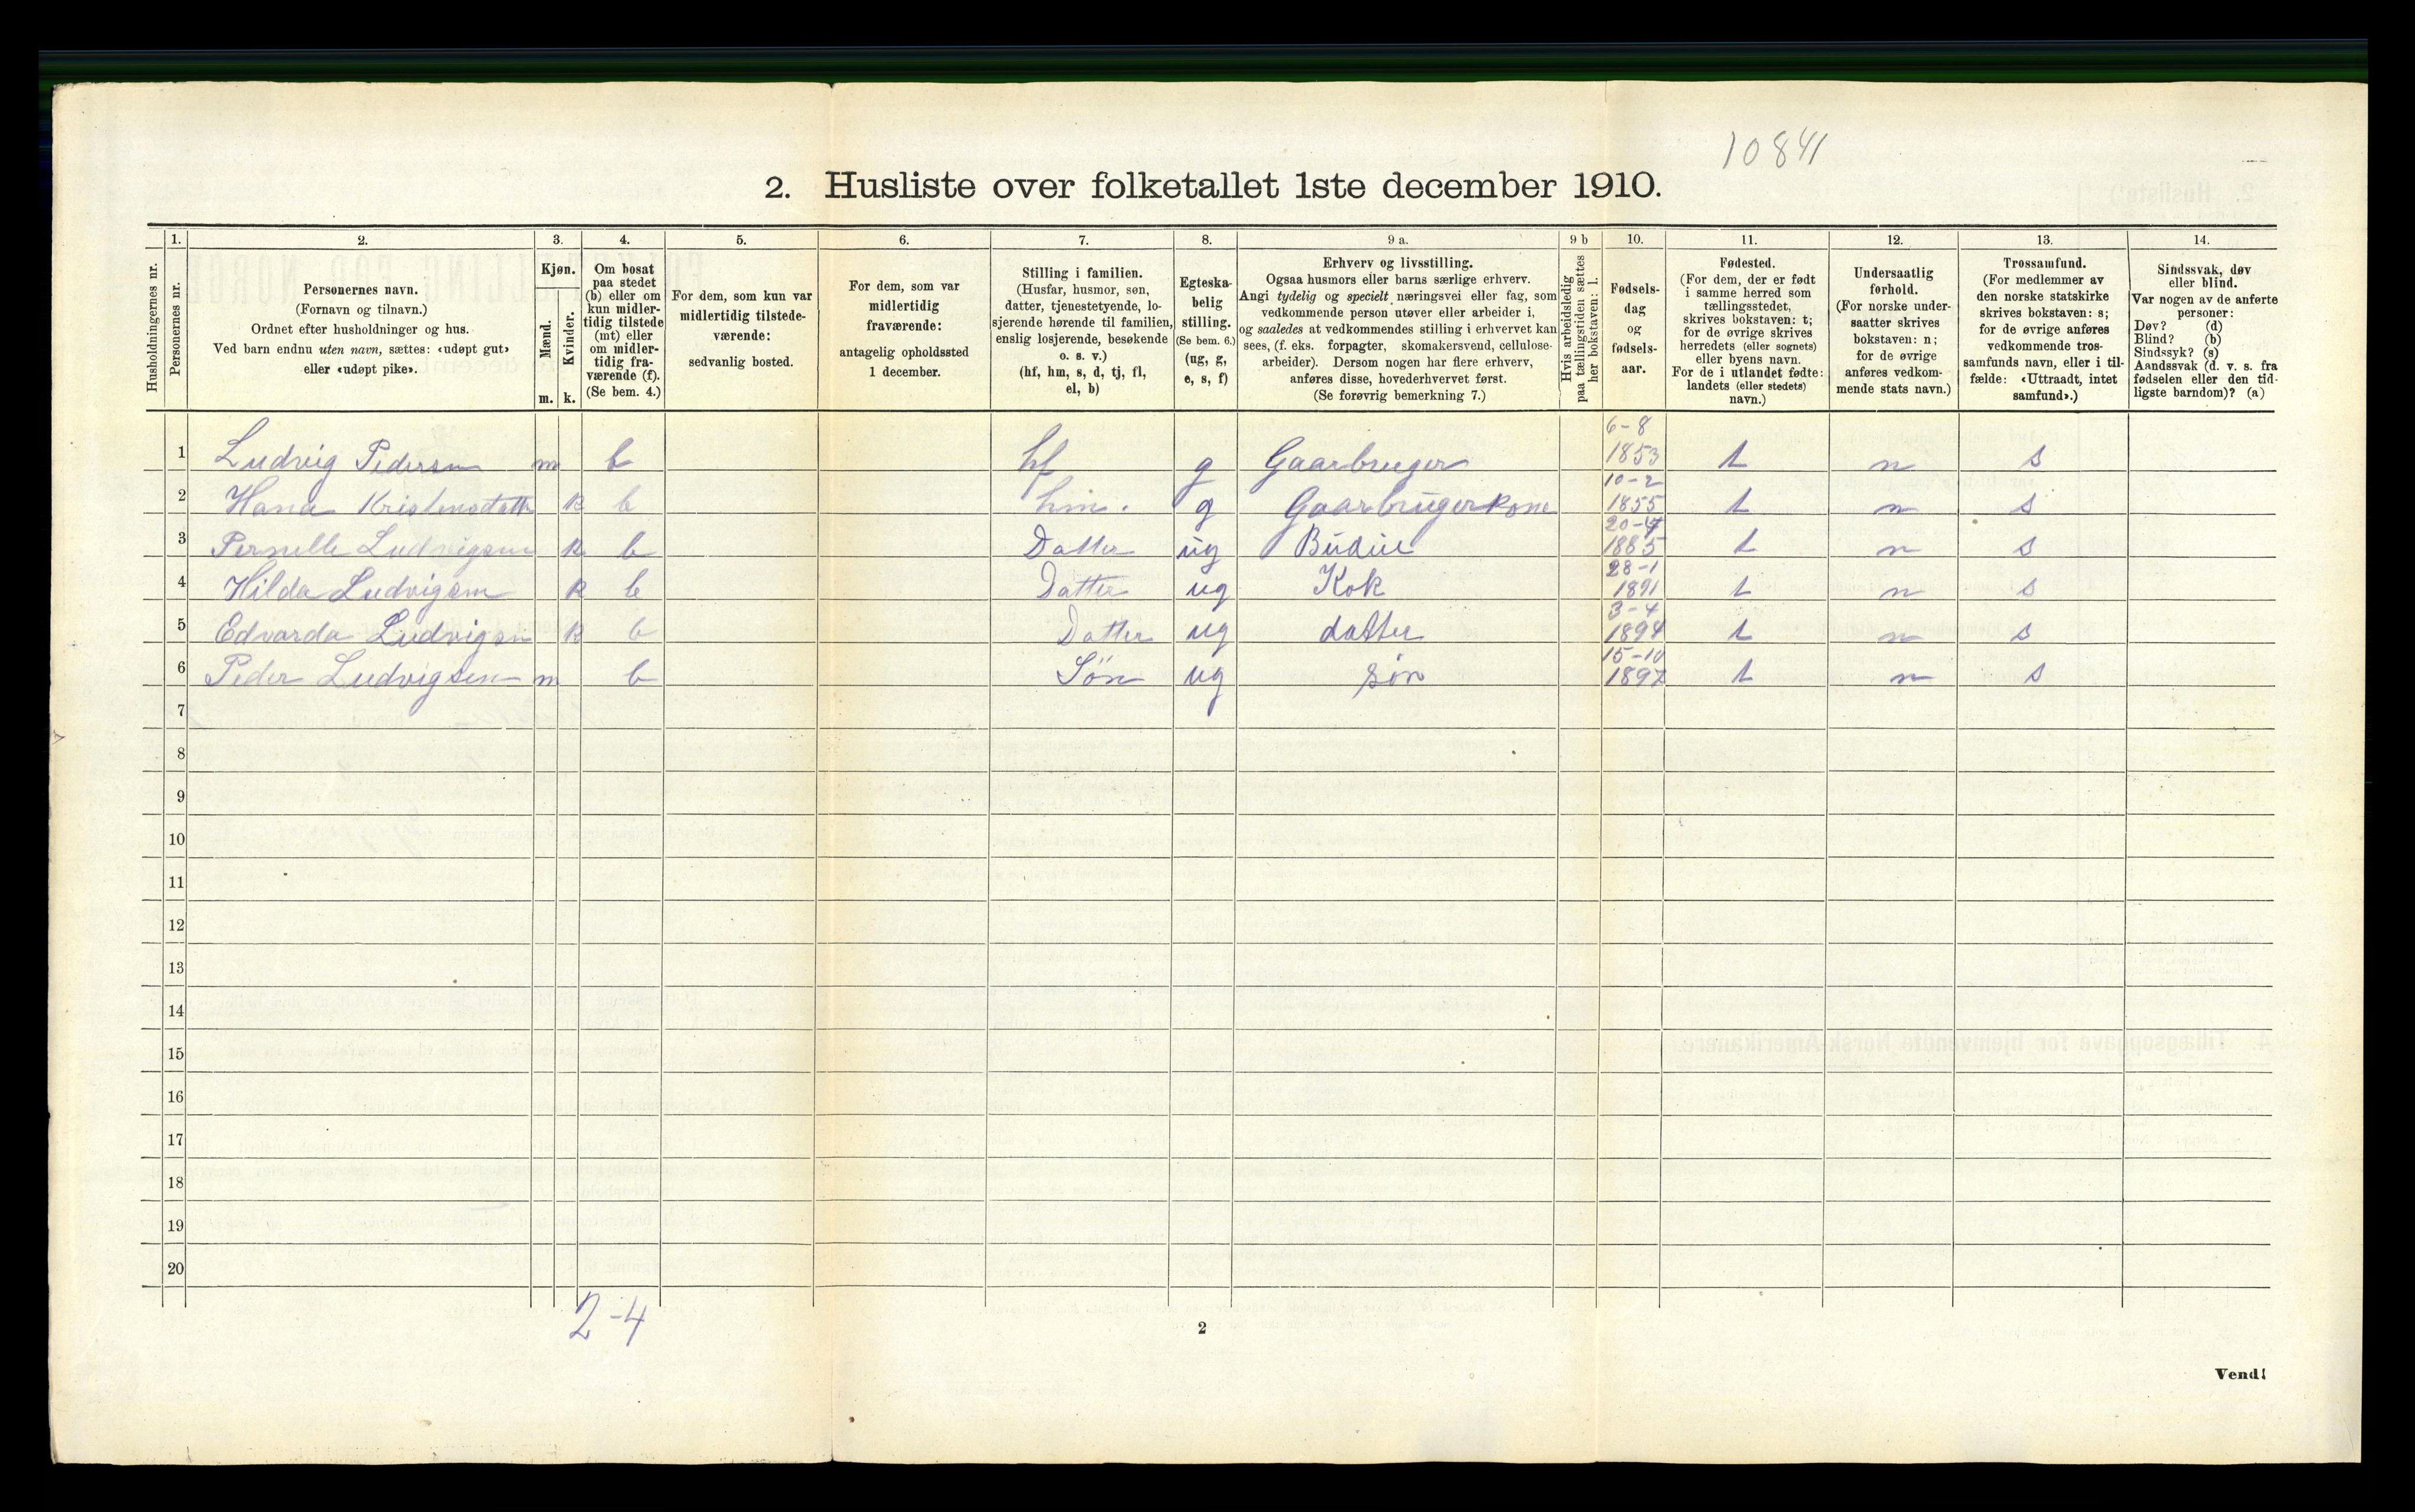 10841
2. Husliste over folketallet 1ste december 1910.
Husholdningernes nr.
1.
Personernes nr.
2.
Personernes navn.
(Fornavn og tilnavn.)
Ordnet efter husholdninger og hus.
Ved barn endnu uten navn, sættes: «udøpt gut»
eller «udøpt pike».
3.
Kjøn.
Mænd.
Kvinder.
m. k.
4.
Om bosat
paa stedet
(b) eller om
kun midler-
tidig tilstede
(mt) eller
om midler-
tidig fra-
værende (f).
(Se bem. 4.)
5.
For dem, som kun var
midlertidig tilstede-
værende:
sedvanlig bosted.
6.
For dem, som var
midlertidig
fraværende:
antagelig opholdssted
1 december.
7.
Stilling i familien.
(Husfar, husmor, søn,
datter, tjenestetyende, lo-
sjerende hørende til familien,
enslig losjerende, besøkende
o. s. v.)
(hf, hm, s, d, tj, fl,
el, b)
8.
Egteska-
belig
stilling.
(Se bem. 6.)
(ug, g,
e, s, f)
9 a.
Erhverv og livsstilling.
Ogsaa husmors eller barns særlige erhverv.
Angi tydelig og specielt næringsvei eller fag, som
vedkommende person utøver eller arbeider i,
og saaledes at vedkommendes stilling i erhvervet kan
sees, (f. eks. forpagter, skomakersvend, cellulose-
arbeider). Dersom nogen har flere erhverv,
anføres disse, hovederhvervet først.
(Se forøvrig bemerkning 7.)
9 b
Hvis arbeidsledig
paa tællingstiden sættes
her bokstaven: l.
10.
Fødsels-
dag
og
fødsels-
aar.
11.
Fødested.
(For dem, der er født
i samme herred som
tællingsstedet,
skrives bokstaven: t;
for de øvrige skrives
herredets (eller sognets)
eller byens navn.
For de i utlandet fødte:
landets (eller stedets)
navn.)
12.
Undersaatlig
forhold.
(For norske under-
saatter skrives
bokstaven: n;
for de øvrige
anføres vedkom-
mende stats navn.)
13.
Trossamfund.
(For medlemmer av
den norske statskirke
skrives bokstaven: s;
for de øvrige anføres
vedkommende tros-
samfunds navn, eller i til-
fælde: «Uttraadt, intet
samfund».)
14.
Sindssvak, døv
eller blind.
Var nogen av de anførte
personer:
Døv? (d)
Blind? (b)
Sindssyk? (s)
Aandssvak (d. v. s. fra
fødselen eller den tid-
ligste barndom)? (a)
1 Ludvig Pedersen m b hf g Gaarbruger 6-8 1853 t n s
2 Hana Kristensdatter k b hm. g Gaarbrugerkone 10-2 1855 t n s
3 Pernelle Ludvigsen k b Datter ug Budeie 1885 t n s
4 Hilda Ludvigsen k b Datter ug Kok 28-1 1891 t n s
5 Edvarda Ludvigsen k b Datter ug datter 3-4 1894 t n s
6 Peder Ludvigsen m b Sön ug sön 15-10 1897 t n s
7
8
9
10
11
12
13
14
15
16
17
18
19
20
2-4
2
Vend!